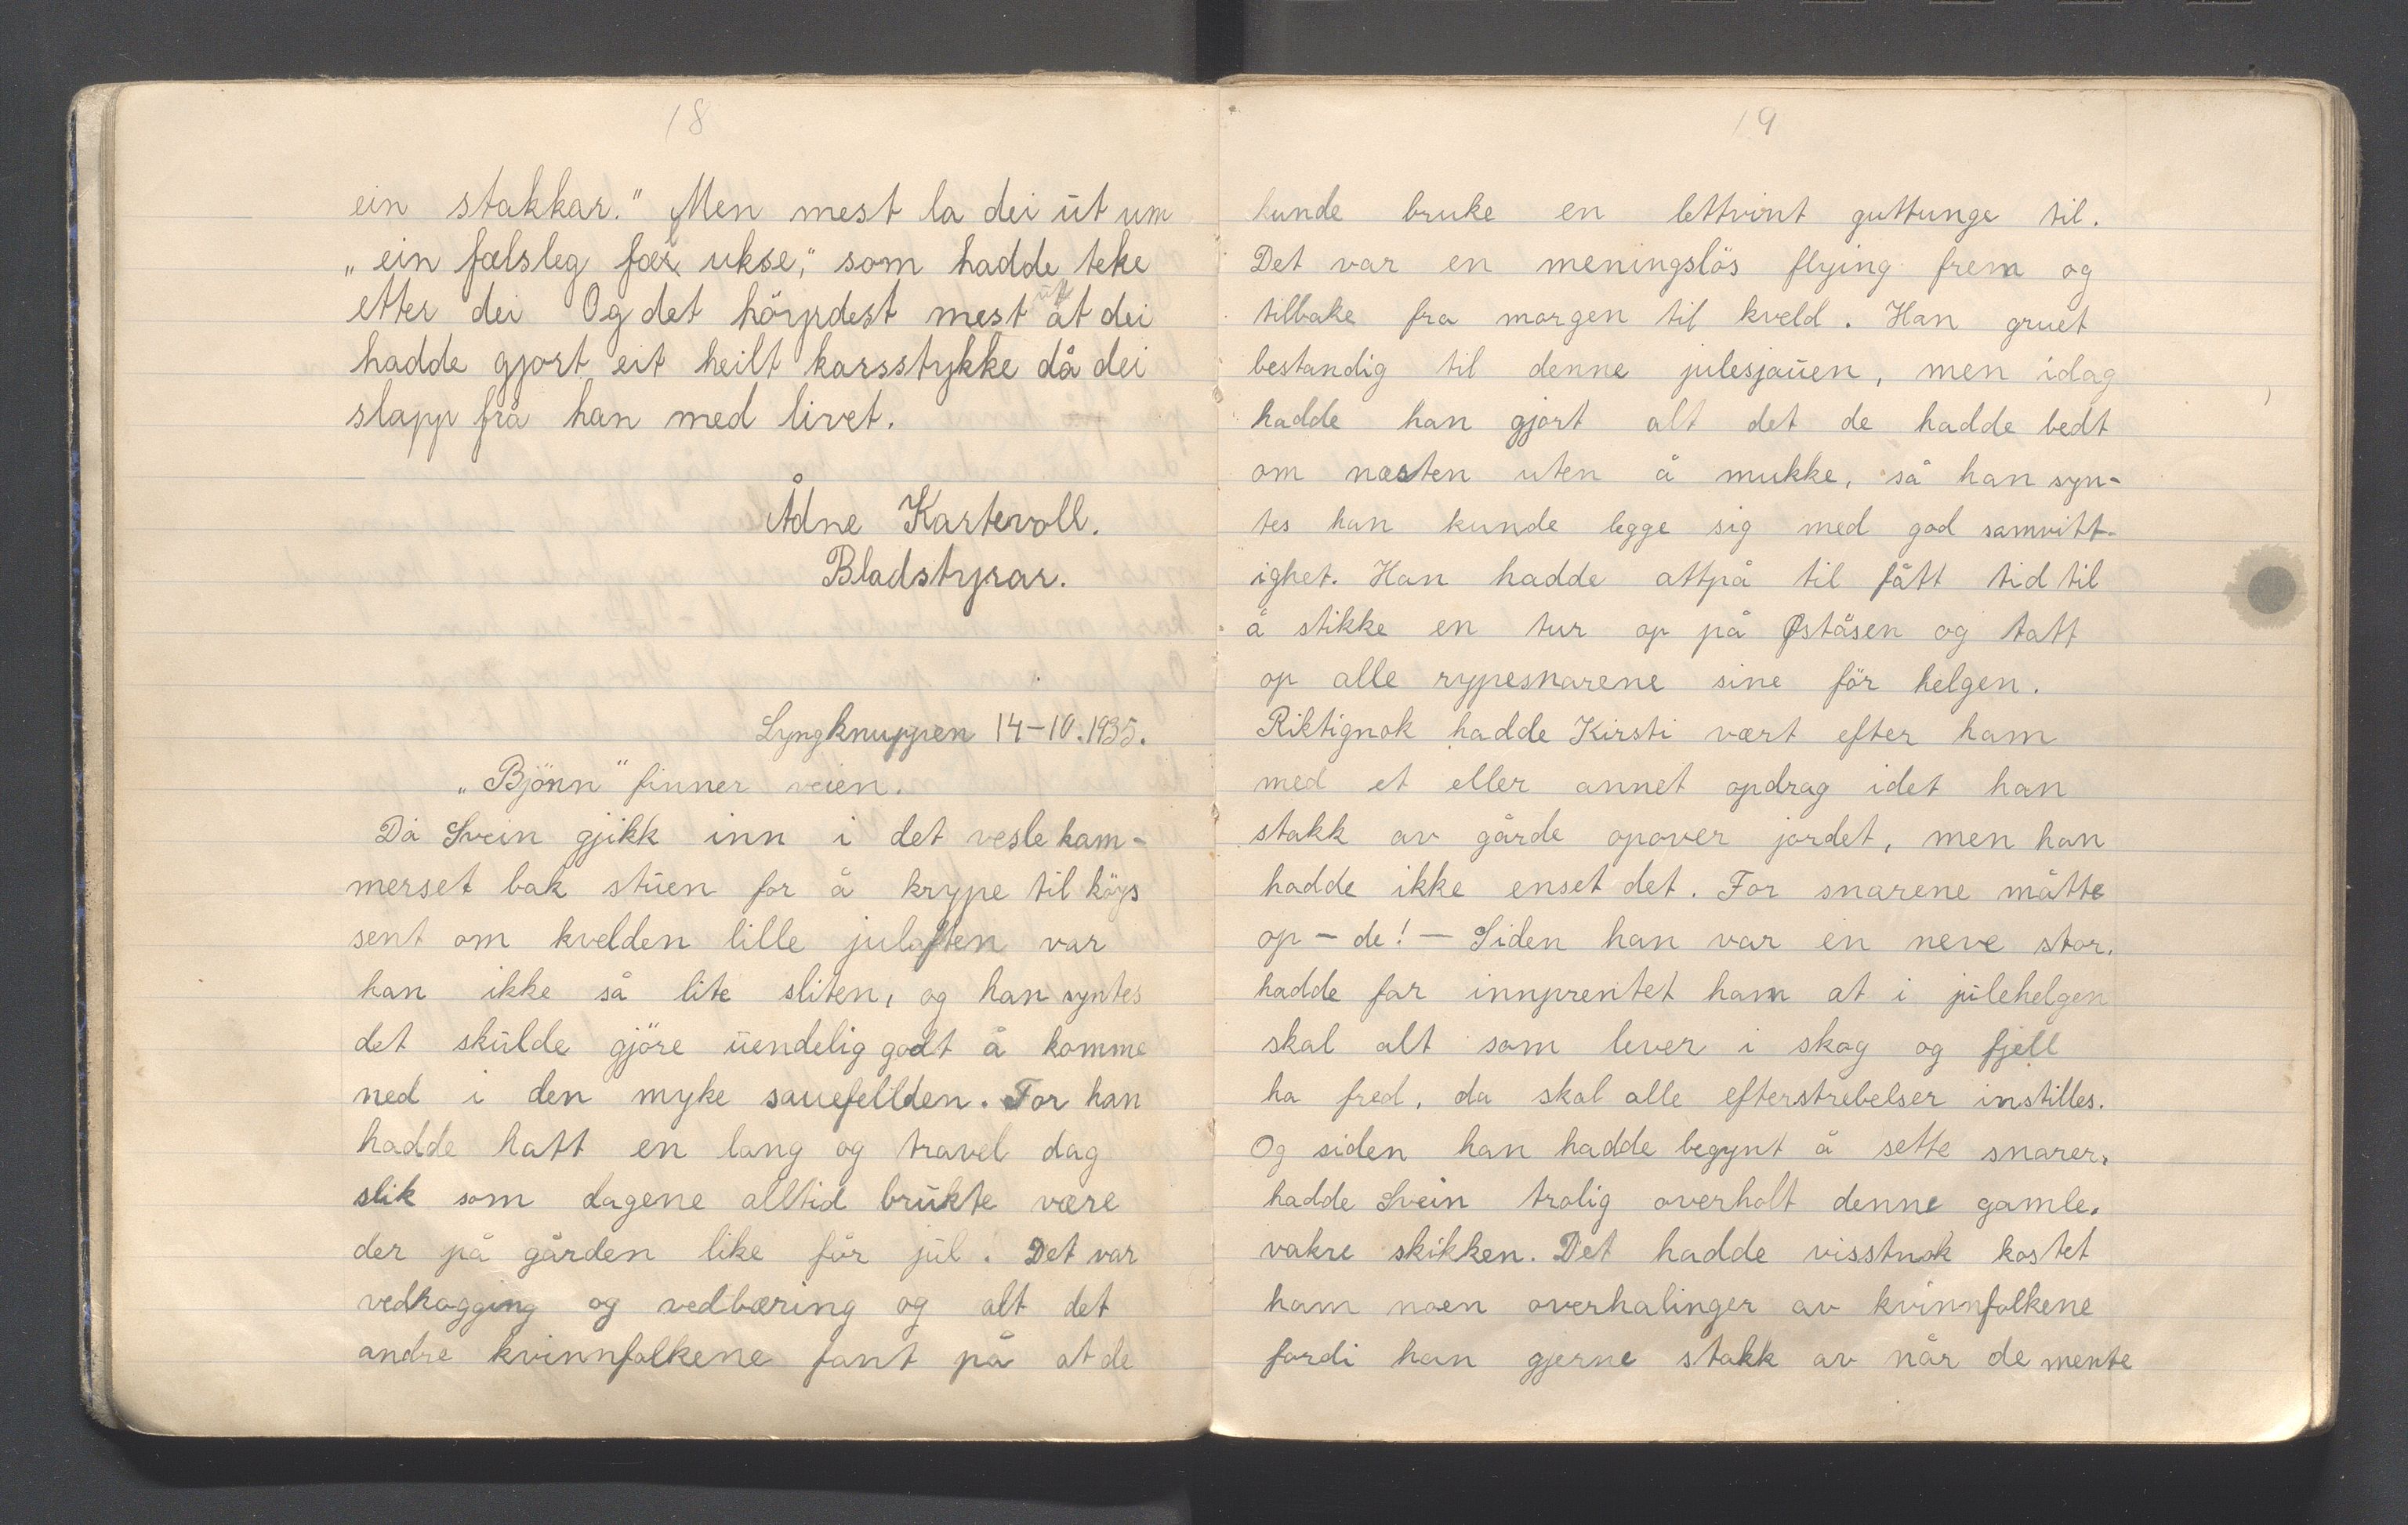 18
ein stakkar." Men mest la dei ut um
„ein fælsleg fær ukse," som hadde teke
etter dei Og det höyrdest mest ut åt dei
hadde gjort eit heilt karsstykke då dei
slapp frå han med livet.
Ådne Kartevoll.
Bladstyrar.
Lyngknuppen 14-10.1935.
„Bjönn" finner veien.
Då Svein gjikk inn i det vesle kam-
merset bak stuen for å krype til köys
sent om kvelden lille julaften var
han ikke så lite sliten, og han syntes
det skulde gjöre uendelig godt å komme
ned i den myke sauefellden. For han
hadde hatt en lang og travel dag
slik som dagene alltid brukte være
der på gården like för jul. Det var
vedhogging og vedbæring og alt det
andre kvinnfolkene fant på at de
19
kunde bruke en lettvint guttunge til.
Det var en meningslös flying frem og
tilbake fra morgen til kveld. Han gruet
bestandig til denne julesjauen, men idag
hadde han gjort alt det de hadde bedt
om næsten uten å mukke, så han syn-
tes han kunde legge sig med god samvitt-
ighet. Han hadde attpå til fått tid til
å stikke en tur op på Øståsen og tatt
op alle rypesnarene sine för helgen.
Riktignok hadde Kirsti vært efter ham
med et eller annet opdrag idet han
stakk av gårde opover jordet, men han
hadde ikke enset det. For snarene måtte
op - de! - Siden han var en neve stor,
hadde far innprentet ham at i julehelgen
skal alt som lever i skog og fjell
ha fred, da skal alle efterstrebelser instilles.
Og siden han hadde begynt å sette snarer,
hadde Svein trolig overholt denne gamle,
vakre skikken. Det hadde visstnok kostet
ham noen overhalinger av kvinnfolkene
fordi han gjerne stakk av når de mente